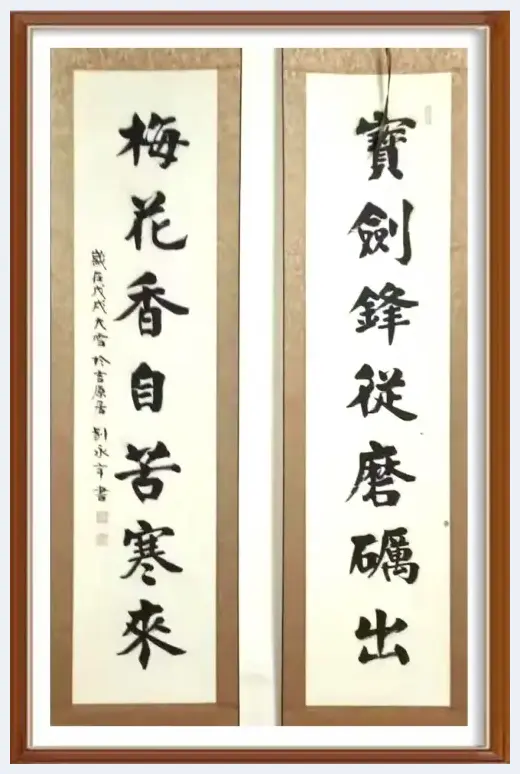 寶劍鋒從磨礪出
梅花香自苦寒來
歲在戊戌大雪於吉原居 劉永亨書